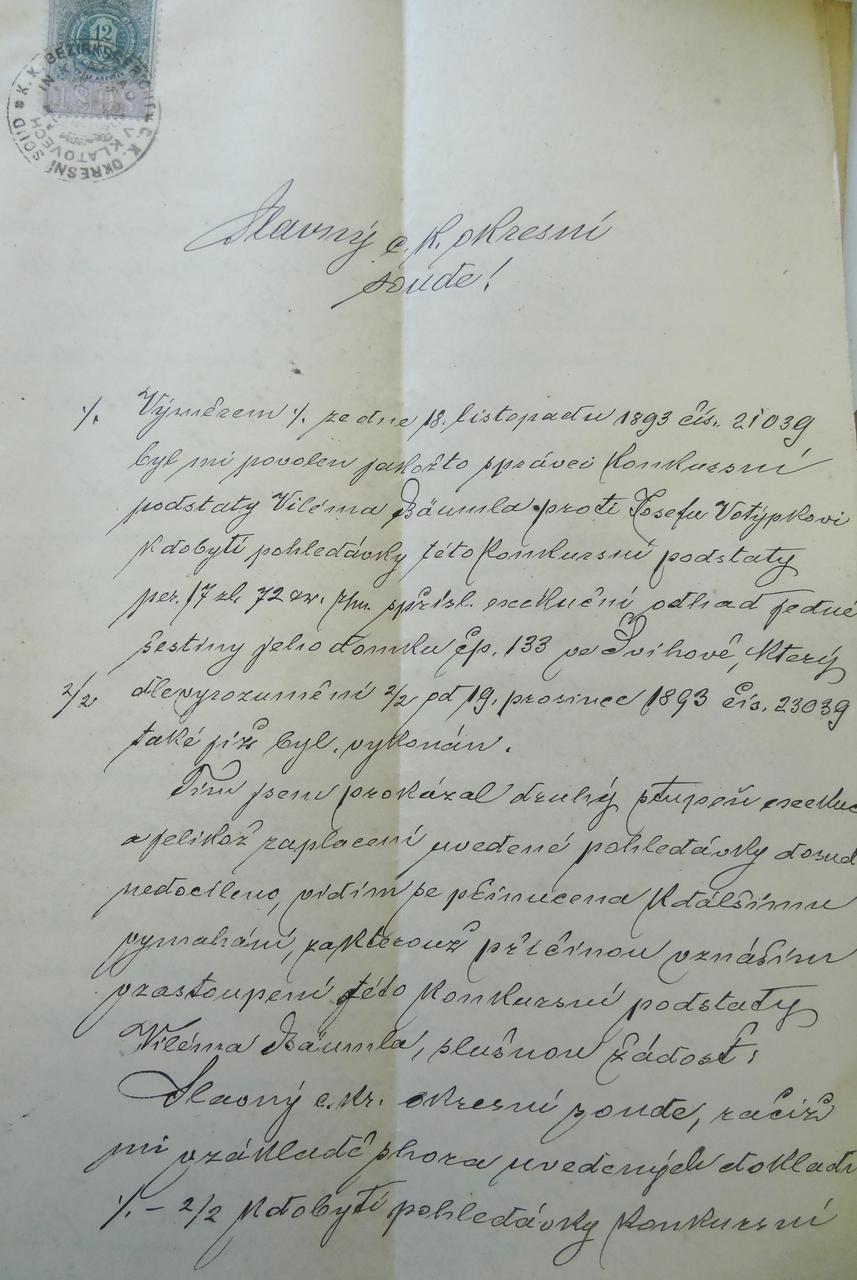 12
K. K. BEZIRKSGERICHT
IN KLATTAU
C. K. OKRESNÍ SOUD
V KLATOVECH
Slavný c. k. okresní
soude!
⁒ Výměrem ⁒ ze dne 18. listopadu 1893 čís. 21039
byl mi povolen jakožto správci konkursní
podstaty Viléma Bäumla proti Josefu Votýpkovi
k dobytí pohledávky této konkursní podstaty
per. 17 zl. 72 kr. s přísl. exekuční odhad jedné
šestiny jeho domku čp. 133 ve Švihově, který
2/2 dle vyrozumění 2/2 od 19. prosince 1893 čís. 23039
také již byl vykonán.
Tím jsem prokázal druhý stupeň exekuc
a jelikož zaplacení uvedené pohledávky dosud
nedocíleno, vidím se přinucena k dalšímu
vymahání, za kterouž příčinou vznáším
v zastoupení této konkursní podstaty
Viléma Bäumla, slušnou žádost:
Slavný c. kr. okresní soude, račiž
mi v základě shora uvedených dokladů
⁒ – 2/2 k dobytí pohledávky konkursní